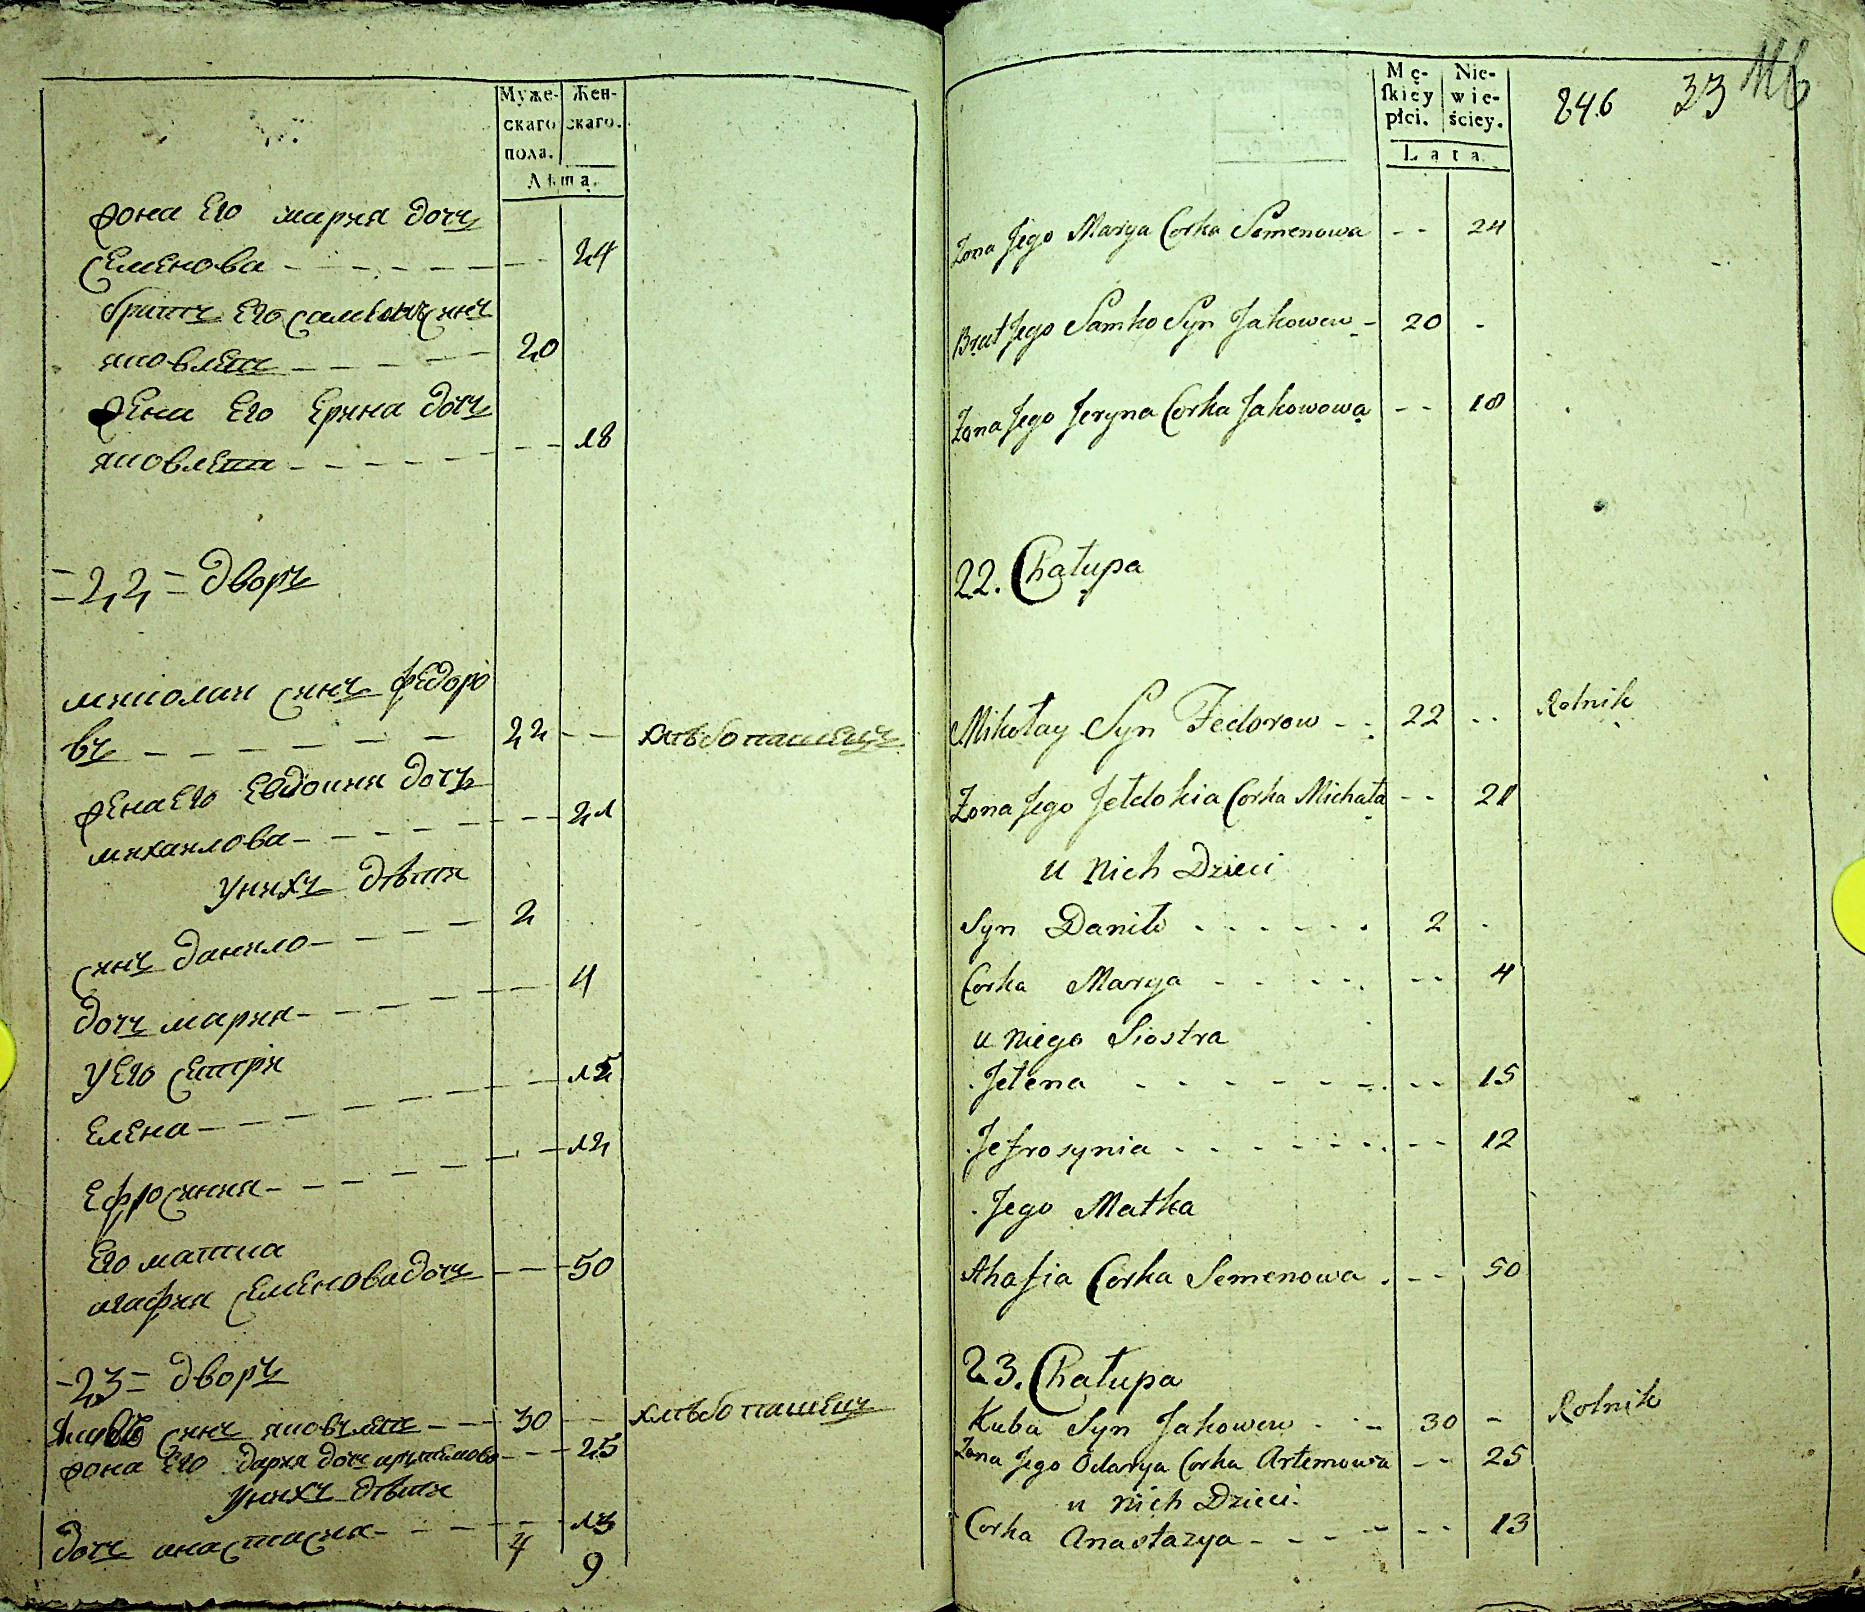 Муже-
скаго
пола.
Жен-
скаго.
Лѣта.
жона Его мария дочъ
Семенова - - - - - - - 24
братъ Его самъко синъ
яковлевъ - - - - - 20
жена Его Ерина дочъ
яковлева - - - - - - - 18
=22= дворъ
миколаи синъ федоро
въ - - - - - - 22 - - хлѣбопашецъ
жена Его Евдокия дочъ
михаилова - - - - - - - 21
У нихъ дѣти
синъ данило - - - - 2
дочъ мария - - - - - - 4
У Его сестри
Елена - - - - - - - 15
Ефросиния - - - - - - - 12
Его матка
агафия семеновадочъ - - - 50
-23= дворъ
синъ яковълевъ - - - 30 - - хлѣбопашецъ
жона Его дария дочъ артемова - - - 25
У нихъ дѣти
дочъ анастасия - - - - - - 13
4
9
Mę-
ſkiey
płci.
Nie-
wie-
ściey.
Lata.
846 33
Zona Jego Marya Corka Semenowa - - 24
Brat Jego Samko Syn Jakowew - 20 -
Zona Jego Jeryna Corka Jakowowa - - 18
22. Chałupa
Mikołay Syn Fedorow - - 22 - - Rolnik
Zona Jego Jełdokia Corka Michała - - 21
u nich Dzieci
Syn Daniło - - - - - - 2 -
Corka Marya - - - - - - - 4
u niego Siostra
Jełena - - - - - - - - - 15
Jefrosynia - - - - - - - - 12
Jego Matka
Ahafia Corka Semenowa - - - 50
23. Chałupa
Kuba Syn Jakowew - - - 30 - Rolnik
Zona Jego Odarya Corka Artemowa - - 25
u nich Dzieci.
Corka Anastazya - - - - - - 13